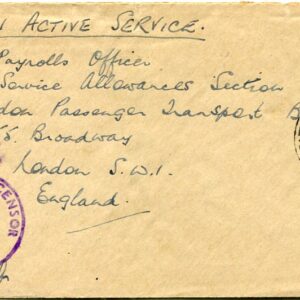 ACTIVE SERVICE.
Payrolls Officer
Service Allowances Section
don Passenger Transport B
55. Broadway
London S.W.1.
England.
CENSOR